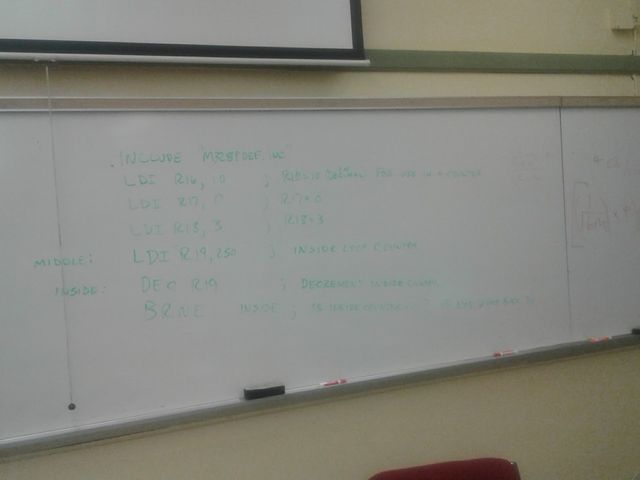 .INCLUDE "M328PDEF.INC"
LDI R16, 10 ; R16=10 DECIMAL FOR USE IN A COUNTER
LDI R17, 0 ; R17=0
LDI R18, 3 ; R18=3
MIDDLE: LDI R19, 250 ; INSIDE LOOP COUNTER
INSIDE: DEC R19 ; DECREMENT INSIDE COUNTER
BRNE INSIDE ; IS INSIDE